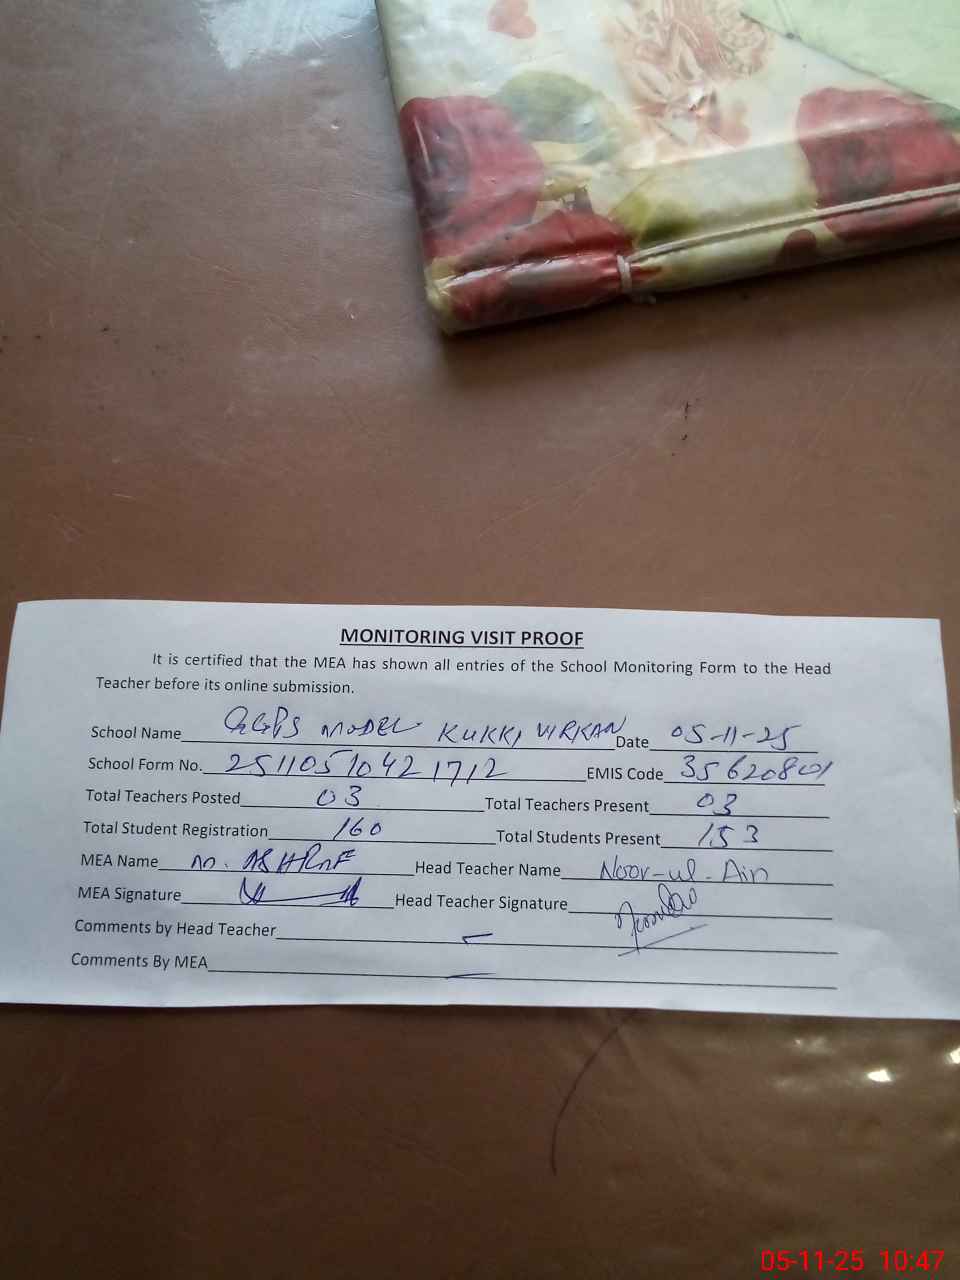 MONITORING VISIT PROOF
It is certified that the MEA has shown all entries of the School Monitoring Form to the Head
Teacher before its online submission.
School Name GGPS MODEL KUKKI VIRKAN Date 05-11-25
School Form No. 2511051042 1712 EMIS Code 35620801
Total Teachers Posted 03 Total Teachers Present 03
Total Student Registration 160 Total Students Present 153
MEA Name M. ASHRAF Head Teacher Name Noor-ul-Ain
MEA Signature Head Teacher Signature
Comments by Head Teacher
Comments By MEA
05-11-25 10:47